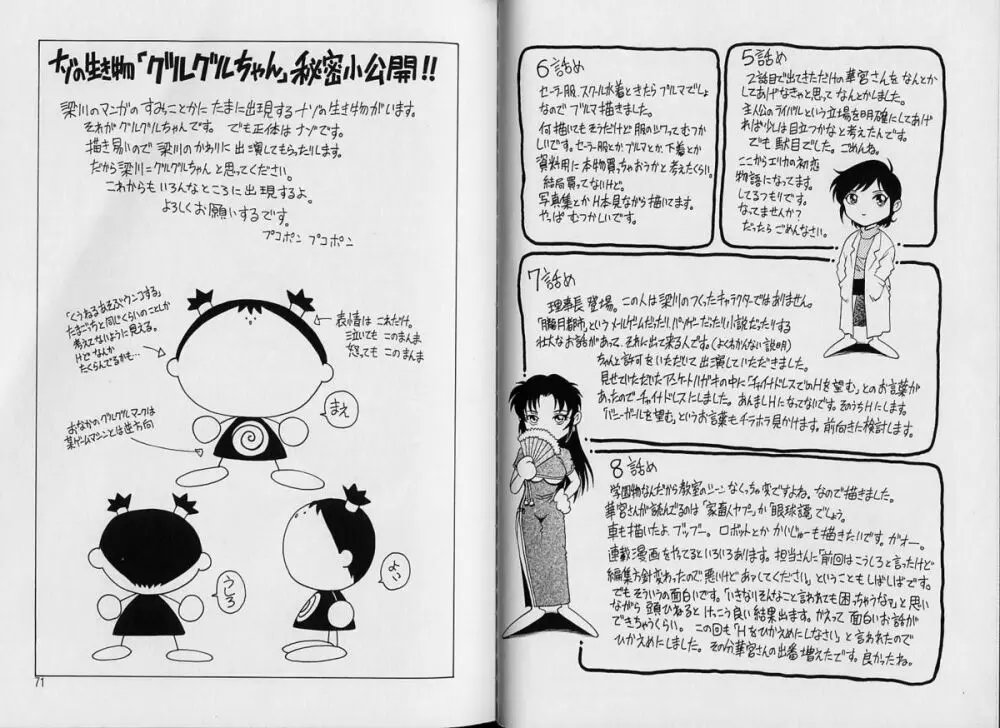 ナゾの生き物「グルグルちゃん」秘密小公開!!
梁川のマンガのすみっことかにたまに出現するナゾの生き物がいます。
それがグルグルちゃんです。でも正体はナゾです。
描き易いので梁川のかわりに出演してもらったりします。
だから梁川=グルグルちゃんと思ってください。
これからもいろんなところに出現するよ。
よろしくお願いするです。
プコポン プコポン
「くうねるあそぶウンコする」
たまごっちと同じくらいのことしか
考えてないように見える。
けどなんか
たくらんでるかも…
表情はこれだけ。
泣いてもこのまんま
怒ってもこのまんま
まえ
おなかのグルグルマークは
某ゲームマシンとは逆方向
うしろ
よこ
71
5話め
2話目で出てきただけの華宮さんをなんとか
してあげなきゃと思ってなんとかしました。
主人公のライバルという立場を明確にしてあげ
れば少しは目立つかなと考えたんです。
でも駄目でした。ごめんね。
ここからエリカの初恋
物語になってます。
してるつもりです。
なってませんか?
だったらごめんなさい。
6話め
セーラー服、スクール水着ときたらブルマでしょ
なのでブルマ描きました。
何描いてもそうだけど服のシワってむつ
かしいです。セーラー服とか、ブルマとか、下着とか
資料用に本物買っちゃおうかと考えたくらい。
結局買ってないけど。
写真集とかH本見ながら描いてます。
やっぱむつかしいです。
7話め
理事長登場。この人は梁川のつくったキャラクターではありません。
「朧月都市」というメールゲームだったり、バンガーだったり小説だったりする
壮大なお話があって、それに出て来る人です。(よくわかんない説明)
ちゃんと許可をいただいて出演していただきました。
見せていただいたアンケートハガキの中に「チャイナドレスでのHを望む」とのお言葉が
あったのでチャイナドレスにしました。あんましHになってないです。そのうちHにします。
「バニーガールを望む」というお言葉もチラホラ見かけます。前向きに検討します。
8話め
学園物なんだから教室のシーンなくっちゃ変ですよね。なので描きました。
華宮さんが読んでるのは「家畜人ヤプー」か「眼球譚」でしょう。
車も描いたよ。ブッブー。ロボットとかかいじゅーも描きたいです。ガオー。
連載漫画をやってるといろいろあります。担当さんに「前回はこうしろと言ったけど
編集方針変わったので悪いけどあってしてください」ということもしばしばです。
でもそういうの面白いです。「いきなりそんなこと言われても困っちゃうな」と思い
ながら頭ひねるとけっこう良い結果出ます。かえって面白いお話が
できちゃうくらい。この回も「Hをひかえめにしなさい」と言われたので
ひかえめにしました。その分華宮さんの出番増えたです。良かったね。